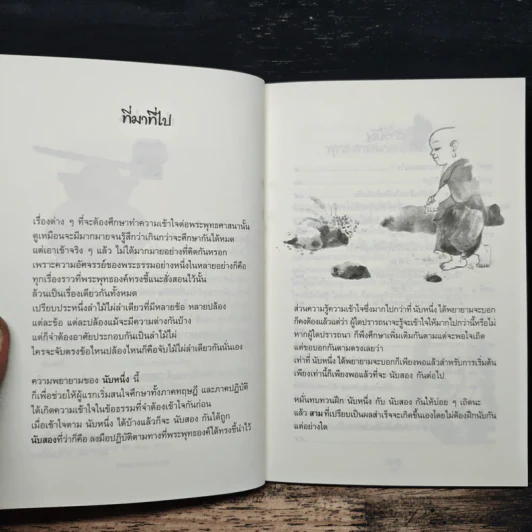 ที่มาที่ไป
เรื่องต่าง ๆ ที่จะต้องศึกษาทำความเข้าใจต่อพระพุทธศาสนานั้น
ดูเหมือนจะมีมากมายจนรู้สึกว่าเกินกว่าจะศึกษากันได้หมด
แต่เอาเข้าจริง ๆ แล้ว ไม่ได้มากมายอย่างที่คิดกันหรอก
เพราะความอัศจรรย์ของพระธรรมอย่างหนึ่งในหลายอย่างก็คือ
ทุกเรื่องราวที่พระพุทธองค์ทรงชี้แนะสั่งสอนไว้นั้น
ล้วนเป็นเรื่องเดียวกันทั้งหมด
เปรียบประหนึ่งลำไม้ไผ่ลำเดียวที่มีหลายข้อ หลายปล้อง
แต่ละข้อ แต่ละปล้องแม้จะมีความต่างกันบ้าง
แต่ก็จำต้องอาศัยประกอบกันเป็นลำไม้ไผ่
ใครจะจับตรงข้อไหนปล้องไหนก็คือจับไม้ไผ่ลำเดียวกันนั่นเอง
ความพยายามของ นับหนึ่ง นี้
ก็เพื่อช่วยให้ผู้แรกเริ่มสนใจศึกษาทั้งภาคทฤษฎี และภาคปฏิบัติ
ได้เกิดความเข้าใจในข้อธรรมที่จำต้องเข้าใจกันก่อน
เมื่อเข้าใจตาม นับหนึ่ง ได้บ้างแล้วก็จะ นับสอง กันได้ถูก
นับสองที่ว่าก็คือ ลงมือปฏิบัติตามทางที่พระพุทธองค์ได้ทรงชี้นำไว้
ส่วนความรู้ความเข้าใจซึ่งมากไปกว่าที่ นับหนึ่ง ได้พยายามจะบอก
ก็คงต้องแล้วแต่ว่า ผู้ใดปรารถนาจะรู้จะเข้าใจให้มากไปกว่านี้หรือไม่
หากผู้ใดปรารถนา ก็พึงศึกษาเพิ่มเติมกันตามแต่จะพอใจเถิด
แต่ขอบอกกันตามตรงเลยว่า
เท่าที่ นับหนึ่ง ได้พยายามจะบอกก็เพียงพอแล้วสำหรับการเริ่มต้น
เพียงเท่านี้ก็เพียงพอแล้วที่จะ นับสอง กันต่อไป
หมั่นทบทวนฝึก นับหนึ่ง กับ นับสอง กันให้บ่อย ๆ เถิดนะ
แล้ว สาม ที่เปรียบเป็นผลสำเร็จจะเกิดขึ้นเองโดยไม่ต้องฝึกนับกัน
แต่อย่างใด